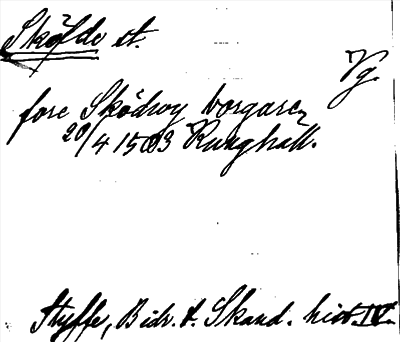 Sköfde st.
Vg.
fore Sködwy borgare
20/4 1503 Kunghäll.
Styffe, Bidr. t. Skand. hist. IV.